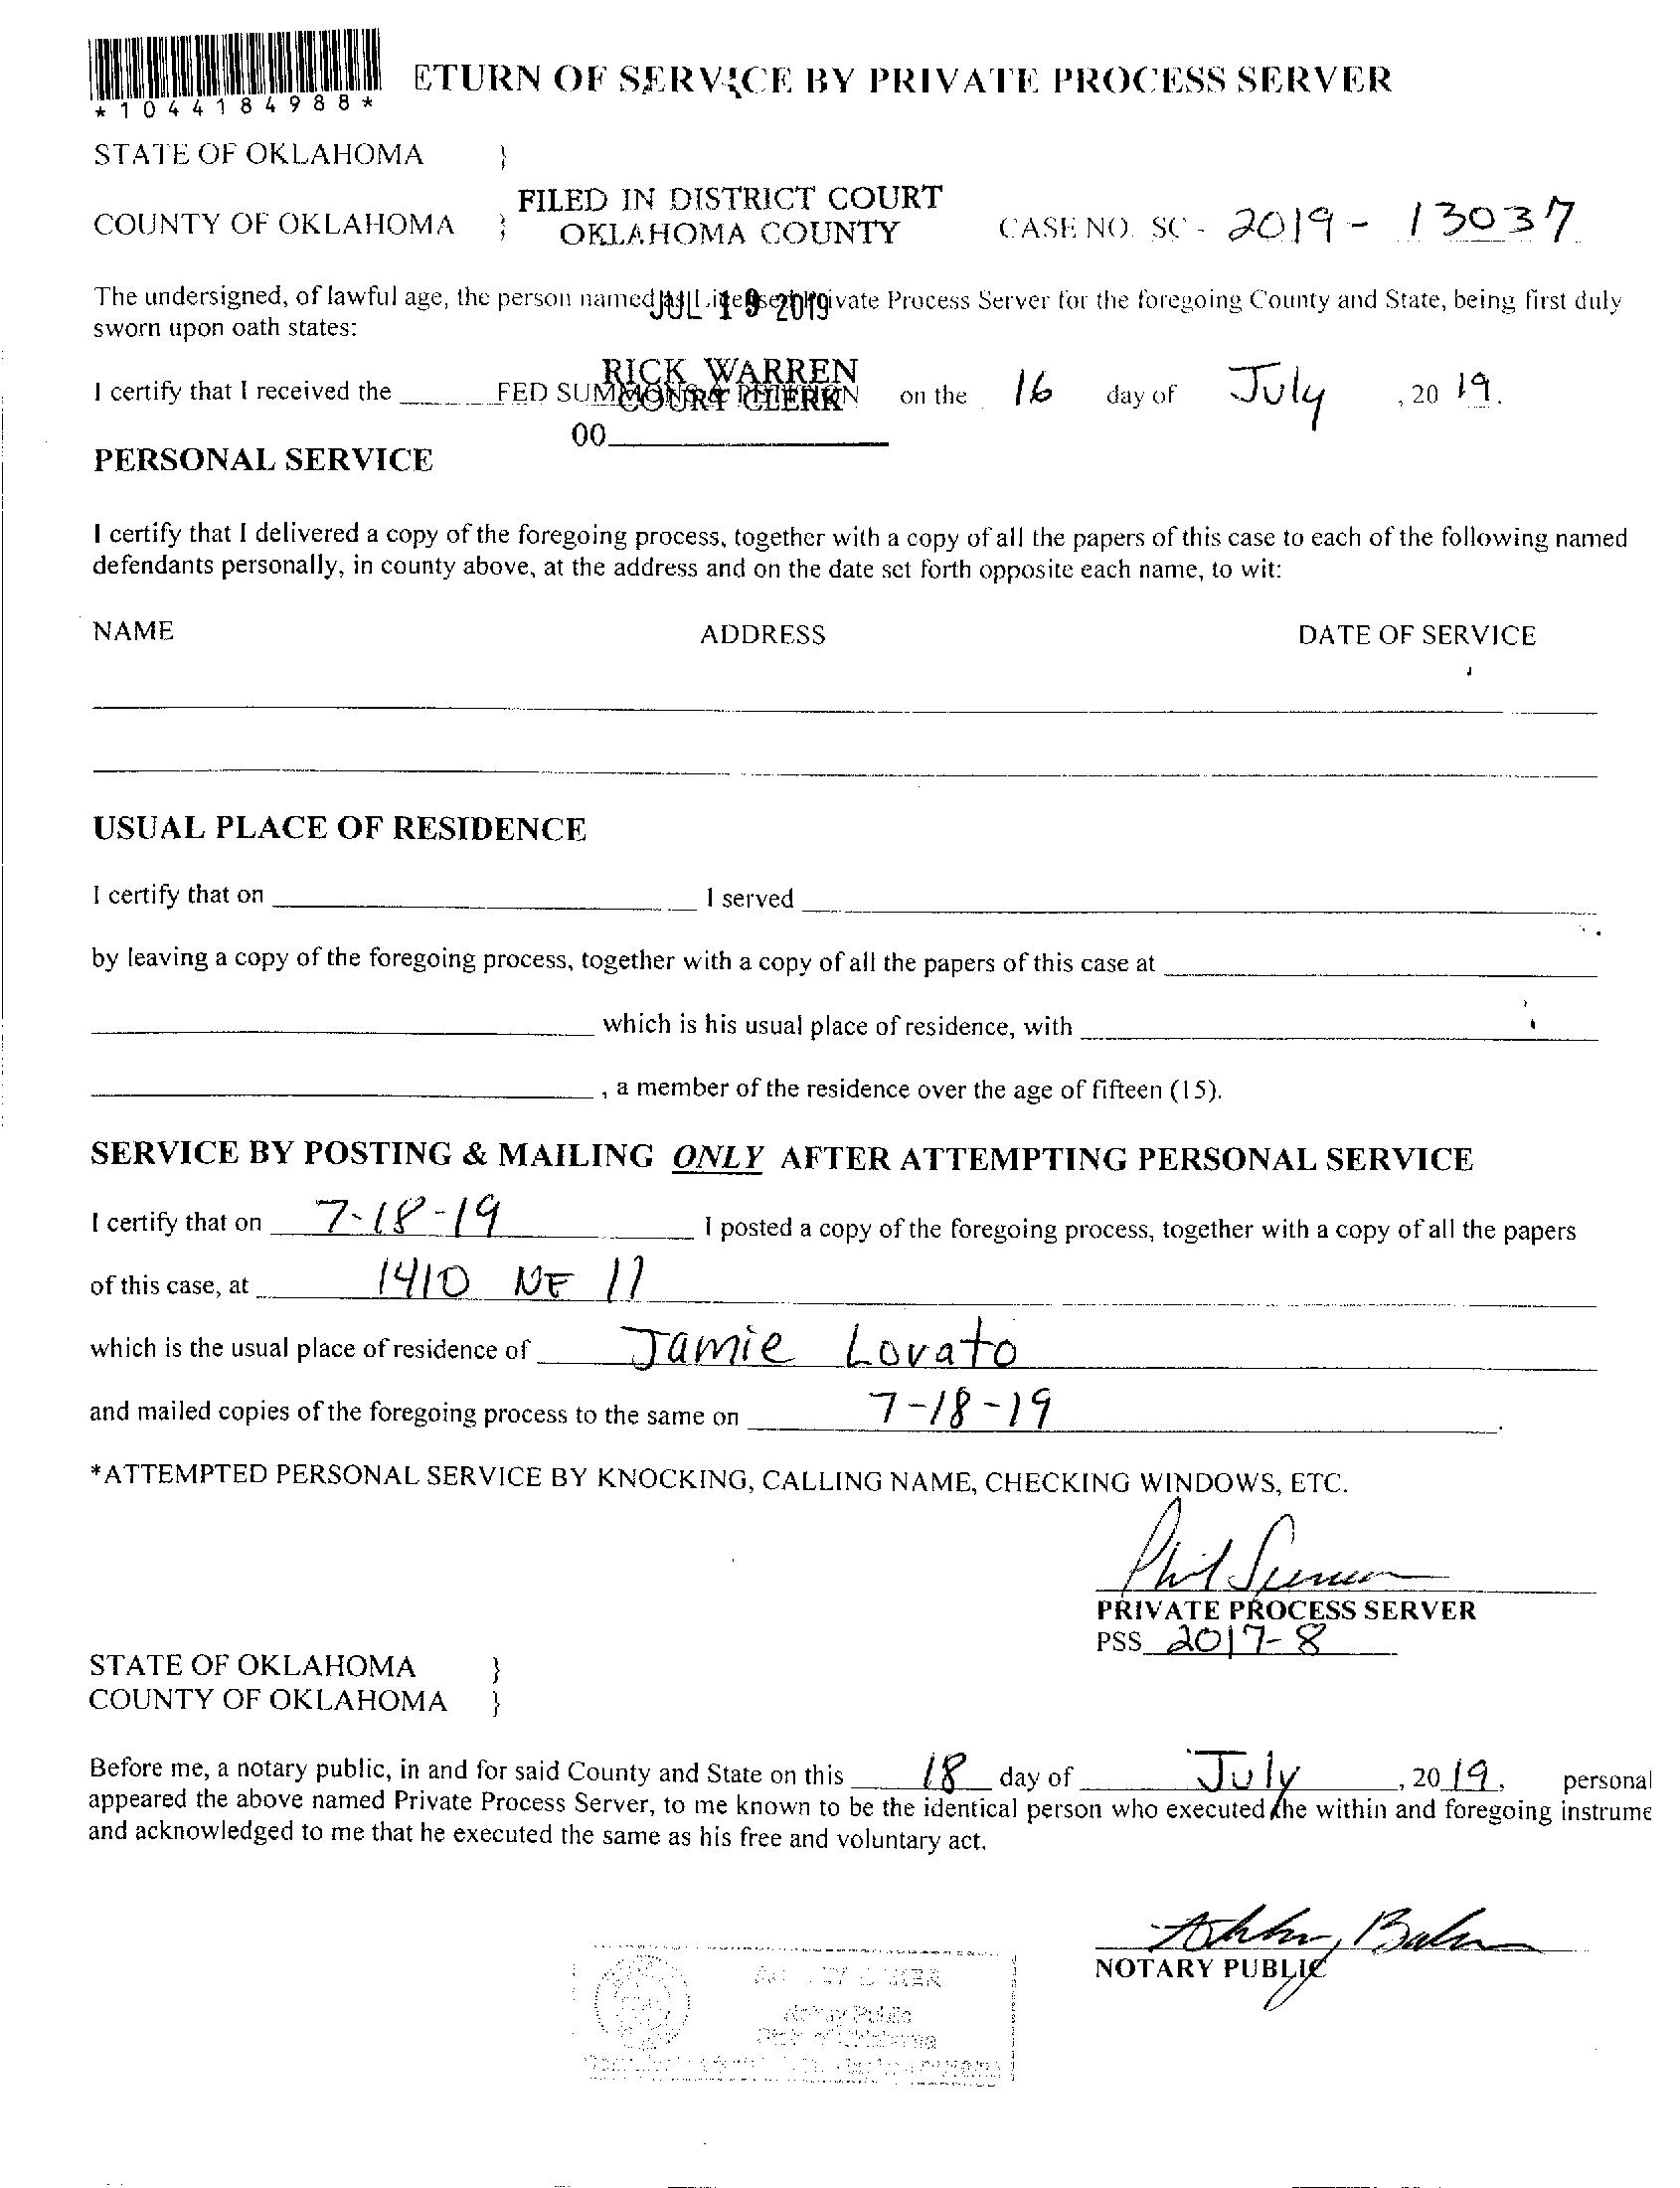 *1044184988*
ETURN OF SERVICE BY PRIVATE PROCESS SERVER
STATE OF OKLAHOMA }
FILED IN DISTRICT COURT
COUNTY OF OKLAHOMA } OKLAHOMA COUNTY CASE NO. SC - 2019 - 13037
The undersigned, of lawful age, the person named as Licensed Private Process Server for the foregoing County and State, being first duly
JUL 19 2019
sworn upon oath states:
RICK WARREN
COURT CLERK
I certify that I received the FED SUMMONS & PETITION on the 16 day of July, 20 19.
00
PERSONAL SERVICE
I certify that I delivered a copy of the foregoing process, together with a copy of all the papers of this case to each of the following named
defendants personally, in county above, at the address and on the date set forth opposite each name, to wit:
NAME ADDRESS DATE OF SERVICE
USUAL PLACE OF RESIDENCE
I certify that on I served
by leaving a copy of the foregoing process, together with a copy of all the papers of this case at
which is his usual place of residence, with
, a member of the residence over the age of fifteen (15).
SERVICE BY POSTING & MAILING ONLY AFTER ATTEMPTING PERSONAL SERVICE
I certify that on 7-18-19 I posted a copy of the foregoing process, together with a copy of all the papers
of this case, at 1410 NE 11
which is the usual place of residence of Jamie Lovato
and mailed copies of the foregoing process to the same on 7-18-19.
*ATTEMPTED PERSONAL SERVICE BY KNOCKING, CALLING NAME, CHECKING WINDOWS, ETC.
Phil
PRIVATE PROCESS SERVER
PSS 2017-8
STATE OF OKLAHOMA }
COUNTY OF OKLAHOMA }
Before me, a notary public, in and for said County and State on this 18 day of July, 20 19, personal
appeared the above named Private Process Server, to me known to be the identical person who executed the within and foregoing instrume
and acknowledged to me that he executed the same as his free and voluntary act.
NOTARY PUBLIC
Notary Public
State of Oklahoma